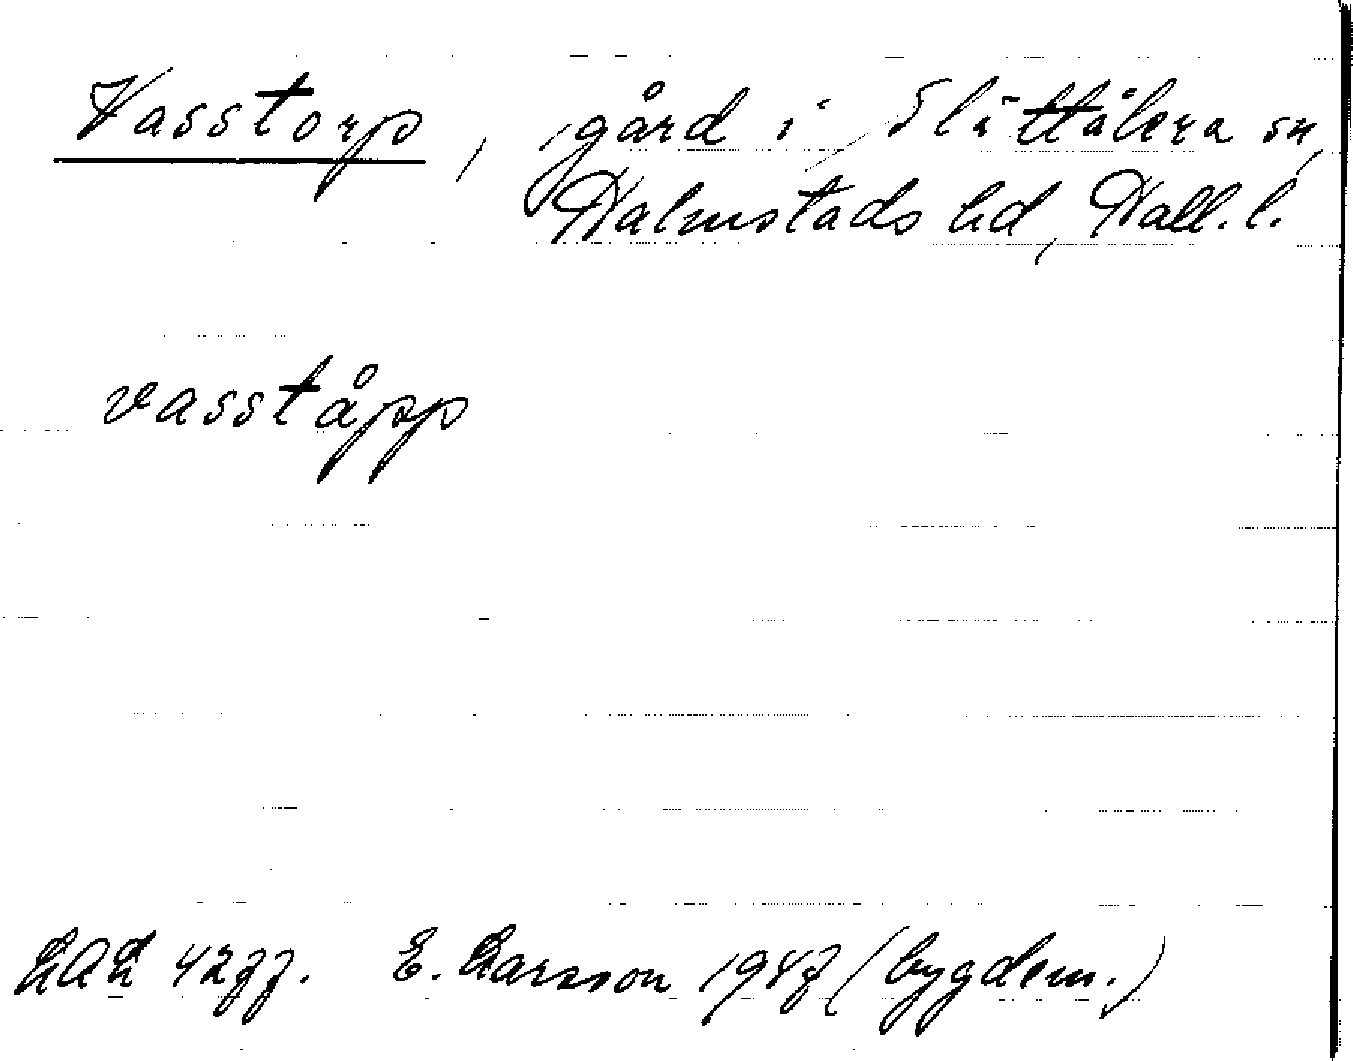 Vasstorp, gård i Slättåkra sn,
Halmstads hd, Hall. l.
vasståpp
E. Larsson 1947 (bygdem.)